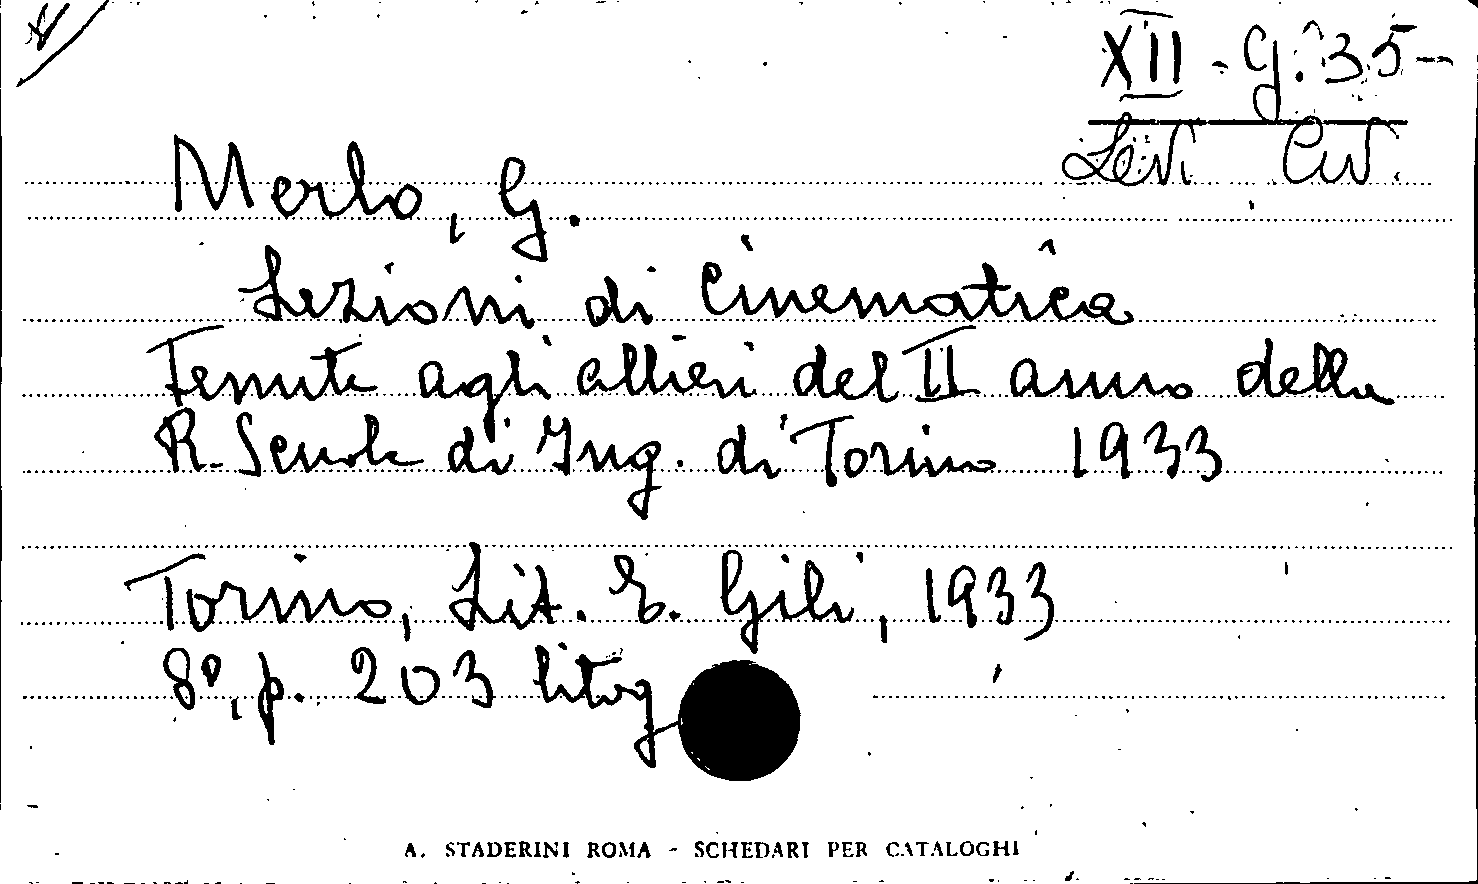 XII - G. 35 -
Levi Civ.
Merlo, G.
Lezioni di Cinematica
Tenute agli allievi del II anno della
R. Scuola di Ing. di Torino 1933
Torino, Lit. E. Gili, 1933
8°, p. 203 litog
A. STADERINI ROMA - SCHEDARI PER CATALOGHI